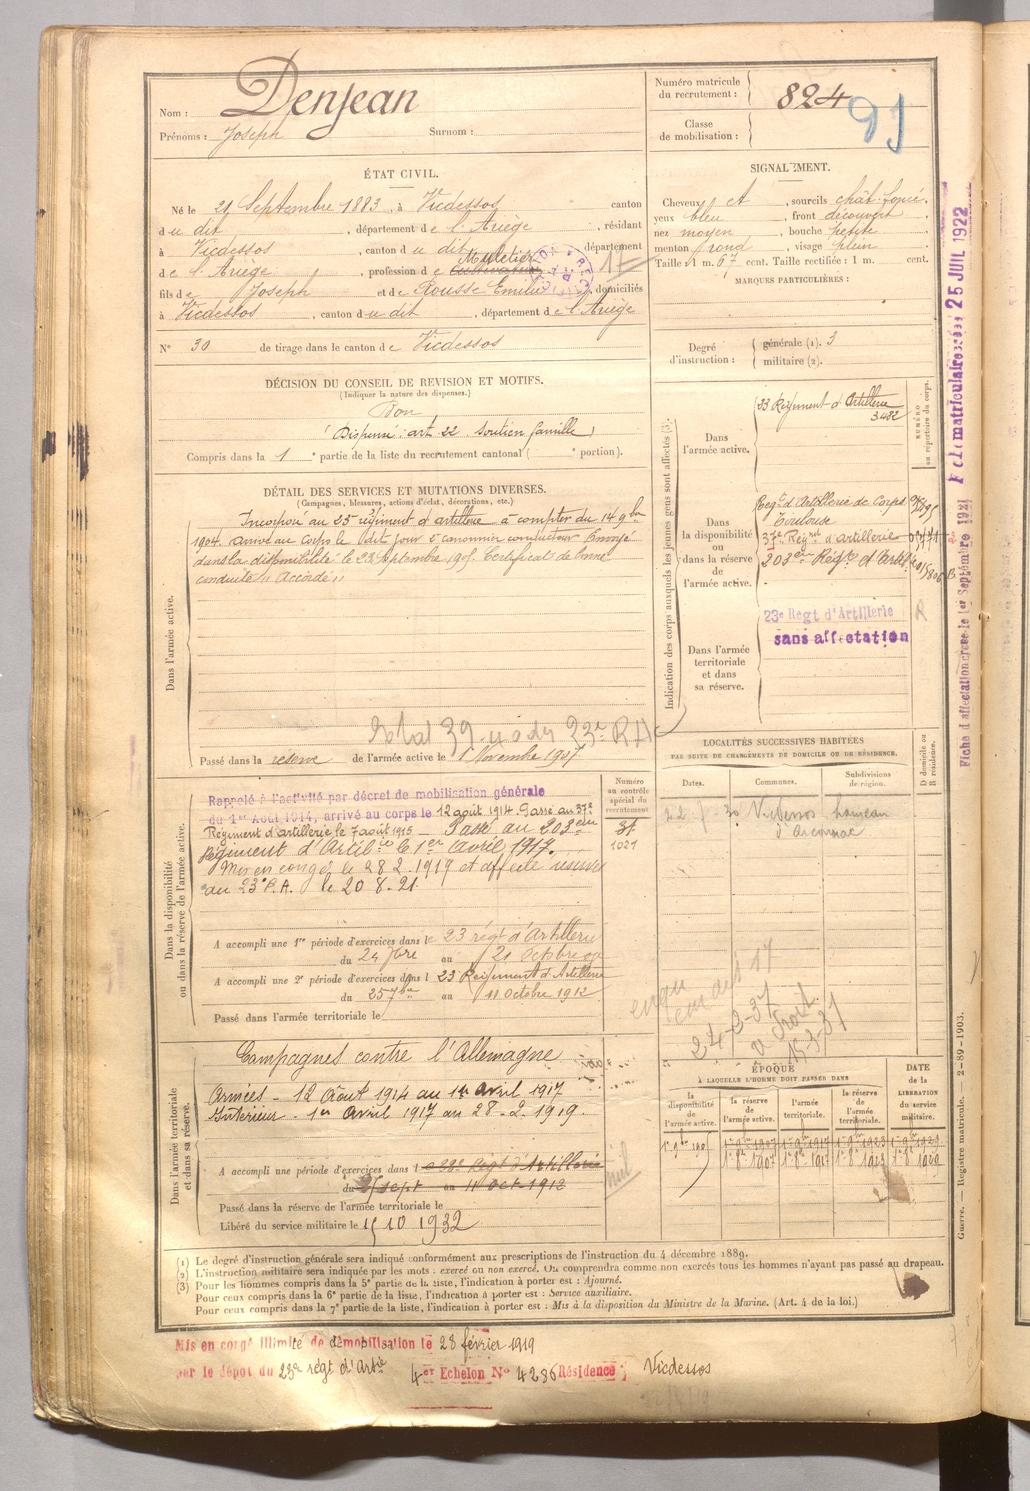 Nom : Denjean
Prénoms : Joseph Surnom :
Numéro matricule
du recrutement : 824
91
Classe
de mobilisation :
ÉTAT CIVIL.
Né le 21 Septembre 1883, à Vicdessos canton
du dit, département de l'Ariège, résidant
à Vicdessos, canton du dit département
Muletier
de l'Ariège, profession de Cultivateur
fils de Joseph et de Rousse Emilie, domiciliés
à Vicdessos, canton du dit, département de l'Ariège
N° 30 de tirage dans le canton de Vicdessos
SIGNALEMENT.
Cheveux et, sourcils chât. foncé
yeux bleu, front découvert
nez moyen, bouche petite
menton rond, visage plein
Taille : 1 m. 67 cent. Taille rectifiée : 1 m. cent.
MARQUES PARTICULIÈRES :
Degré
d'instruction :
générale (1). 3
militaire (2).
DÉCISION DU CONSEIL DE REVISION ET MOTIFS.
(Indiquer la nature des dispenses.)
Bon
(Dispensé : art 22 Soutien famille)
Compris dans la 1e partie de la liste du recrutement cantonal ( e portion).
DÉTAIL DES SERVICES ET MUTATIONS DIVERSES.
(Campagnes, blessures, actions d'éclat, décorations, etc.)
Dans l'armée active.
Incorporé au 23 régiment d'artillerie à compter du 14 9bre
1904. arrivé au Corps le dit jour 2e canonnier conducteur Envoyé
dans la disponibilité le 23 Septembre 1905. Certificat de bonne
conduite "Accordé"
Passé dans la réserve de l'armée active le 1 Novembre 1907
Indication des corps auxquels les jeunes gens sont affectés (3)
NUMÉRO
au répertoire du corps.
Dans
l'armée active.
23 Régiment d'Artillerie
3482
Dans
la disponibilité
ou
dans la réserve
de
l'armée active.
Regt d'Artillerie de Corps
Toulouse
37e Régnt d'artillerie
203eme Régt d'Artie
Dans l'armée
territoriale
et dans
sa réserve.
23e Regt d'Artillerie
sans affectation
Fiche d'affectation créée le 1er Septembre 1921
Fiche matriculaire créée 25 JUIL 1922
LOCALITÉS SUCCESSIVES HABITÉES
PAR SUITE DE CHANGEMENTS DE DOMICILE OU DE RÉSIDENCE.
D domicile ou
R résidence.
Dates.
Communes.
Subdivisions
de région.
Vicdessos hameau
d'Arconnac
Dans la disponibilité
ou dans la réserve de l'armée active.
Numéro
au contrôle
spécial du
recrutement
1021
Rappelé à l'activité par décret de mobilisation générale
du 1er Août 1914, arrivé au corps le 12 août 1914. Passé au 37e
Régiment d'artillerie le 7 août 1915 — Passé au 203eme
Régiment d'Artillie le 1er avril 1917.
Mis en congé le 28 2. 1919 et affecté réserve
au 23e R.A. le 20.8.21.
A accompli une 1re période d'exercices dans le 23 régt d'Artillerie
du 24 7bre au 21 Octobre 09
A accompli une 2e période d'exercices dans l 23 Régiment d'Artillerie
du 25 7bre au 11 Octobre 1912
Passé dans l'armée territoriale le
24-2-37
15-3-37
Dans l'armée territoriale
et dans sa réserve.
Campagnes contre l'Allemagne
Armées - 12 Août 1914 au 1er Avril 1917
Intérieur - 1er Avril 1917 au 28-2.1919.
A accompli une période d'exercices dans l e 23e Régt d'Artillerie
du 25 sept au 11 oct 1912
Nul
Passé dans la réserve de l'armée territoriale le
Libéré du service militaire le 15 10 1932
ÉPOQUE
À LAQUELLE L'HOMME DOIT PASSER DANS
DATE
de la
LIBÉRATION
du service
militaire.
la
disponibilité
de
l'armée active.
la réserve
de
l'armée active.
l'armée
territoriale.
la réserve
de
l'armée
territoriale.
Guerre. — Registre matricule. 2-89-1903.
(1) Le degré d'instruction générale sera indiqué conformément aux prescriptions de l'instruction du 4 décembre 1889.
(2) L'instruction militaire sera indiquée par les mots : exercé ou non exercé. On comprendra comme non exercés tous les hommes n'ayant pas passé au drapeau.
(3) Pour les hommes compris dans la 5e partie de la liste, l'indication à porter est : Ajourné.
Pour ceux compris dans la 6e partie de la liste, l'indication à porter est : Service auxiliaire.
Pour ceux compris dans la 7e partie de la liste, l'indication à porter est : Mis à la disposition du Ministre de la Marine. (Art. 4 de la loi.)
Mis en congé illimité de démobilisation le 28 février 1919
par le dépôt du 23e régt d'Artie 4er Echelon N° 4286 Résidence : Vicdessos